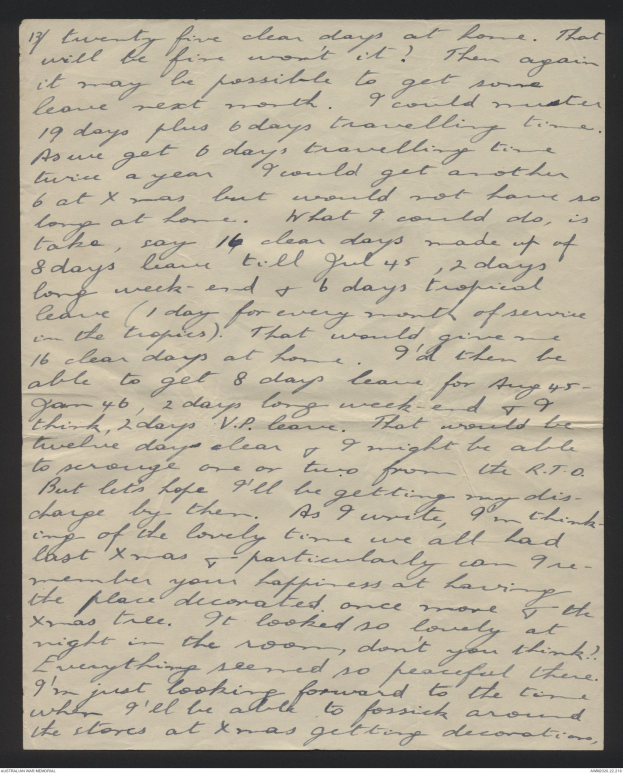 13/ twenty five clear days at home. That
will be fine won't it? Then again
it may be possible to get some
leave next month. I could muster
19 days plus 6 days travelling time.
As we get 6 days travelling time
twice a year I could get another
6 at Xmas but would not have so
long at home. What I could do, is
take, say 16 clear days made up of
8 days leave till Jul 45, 2 days
long week-end & 6 days tropical
leave (1 day for every month of service
in the tropics). That would give me
16 clear days at home. I'd then be
able to get 8 days leave for Aug 45-
Jan 46, 2 days long week-end & I
think, 2 days V.P. leave. That would be
twelve days clear & I might be able
to scrounge one or two from the R.T.O.
But let's hope I'll be getting my dis-
charge by then. As I write, I'm think-
ing of the lovely time we all had
last Xmas & particularly can I re-
member your happiness at having
the place decorated once more & the
Xmas tree. It looked so lovely at
night in the room, don't you think?
Everything seemed so peaceful there.
I'm just looking forward to the time
when I'll be able to fossick around
the stores at Xmas getting decorations,
AUSTRALIAN WAR MEMORIAL